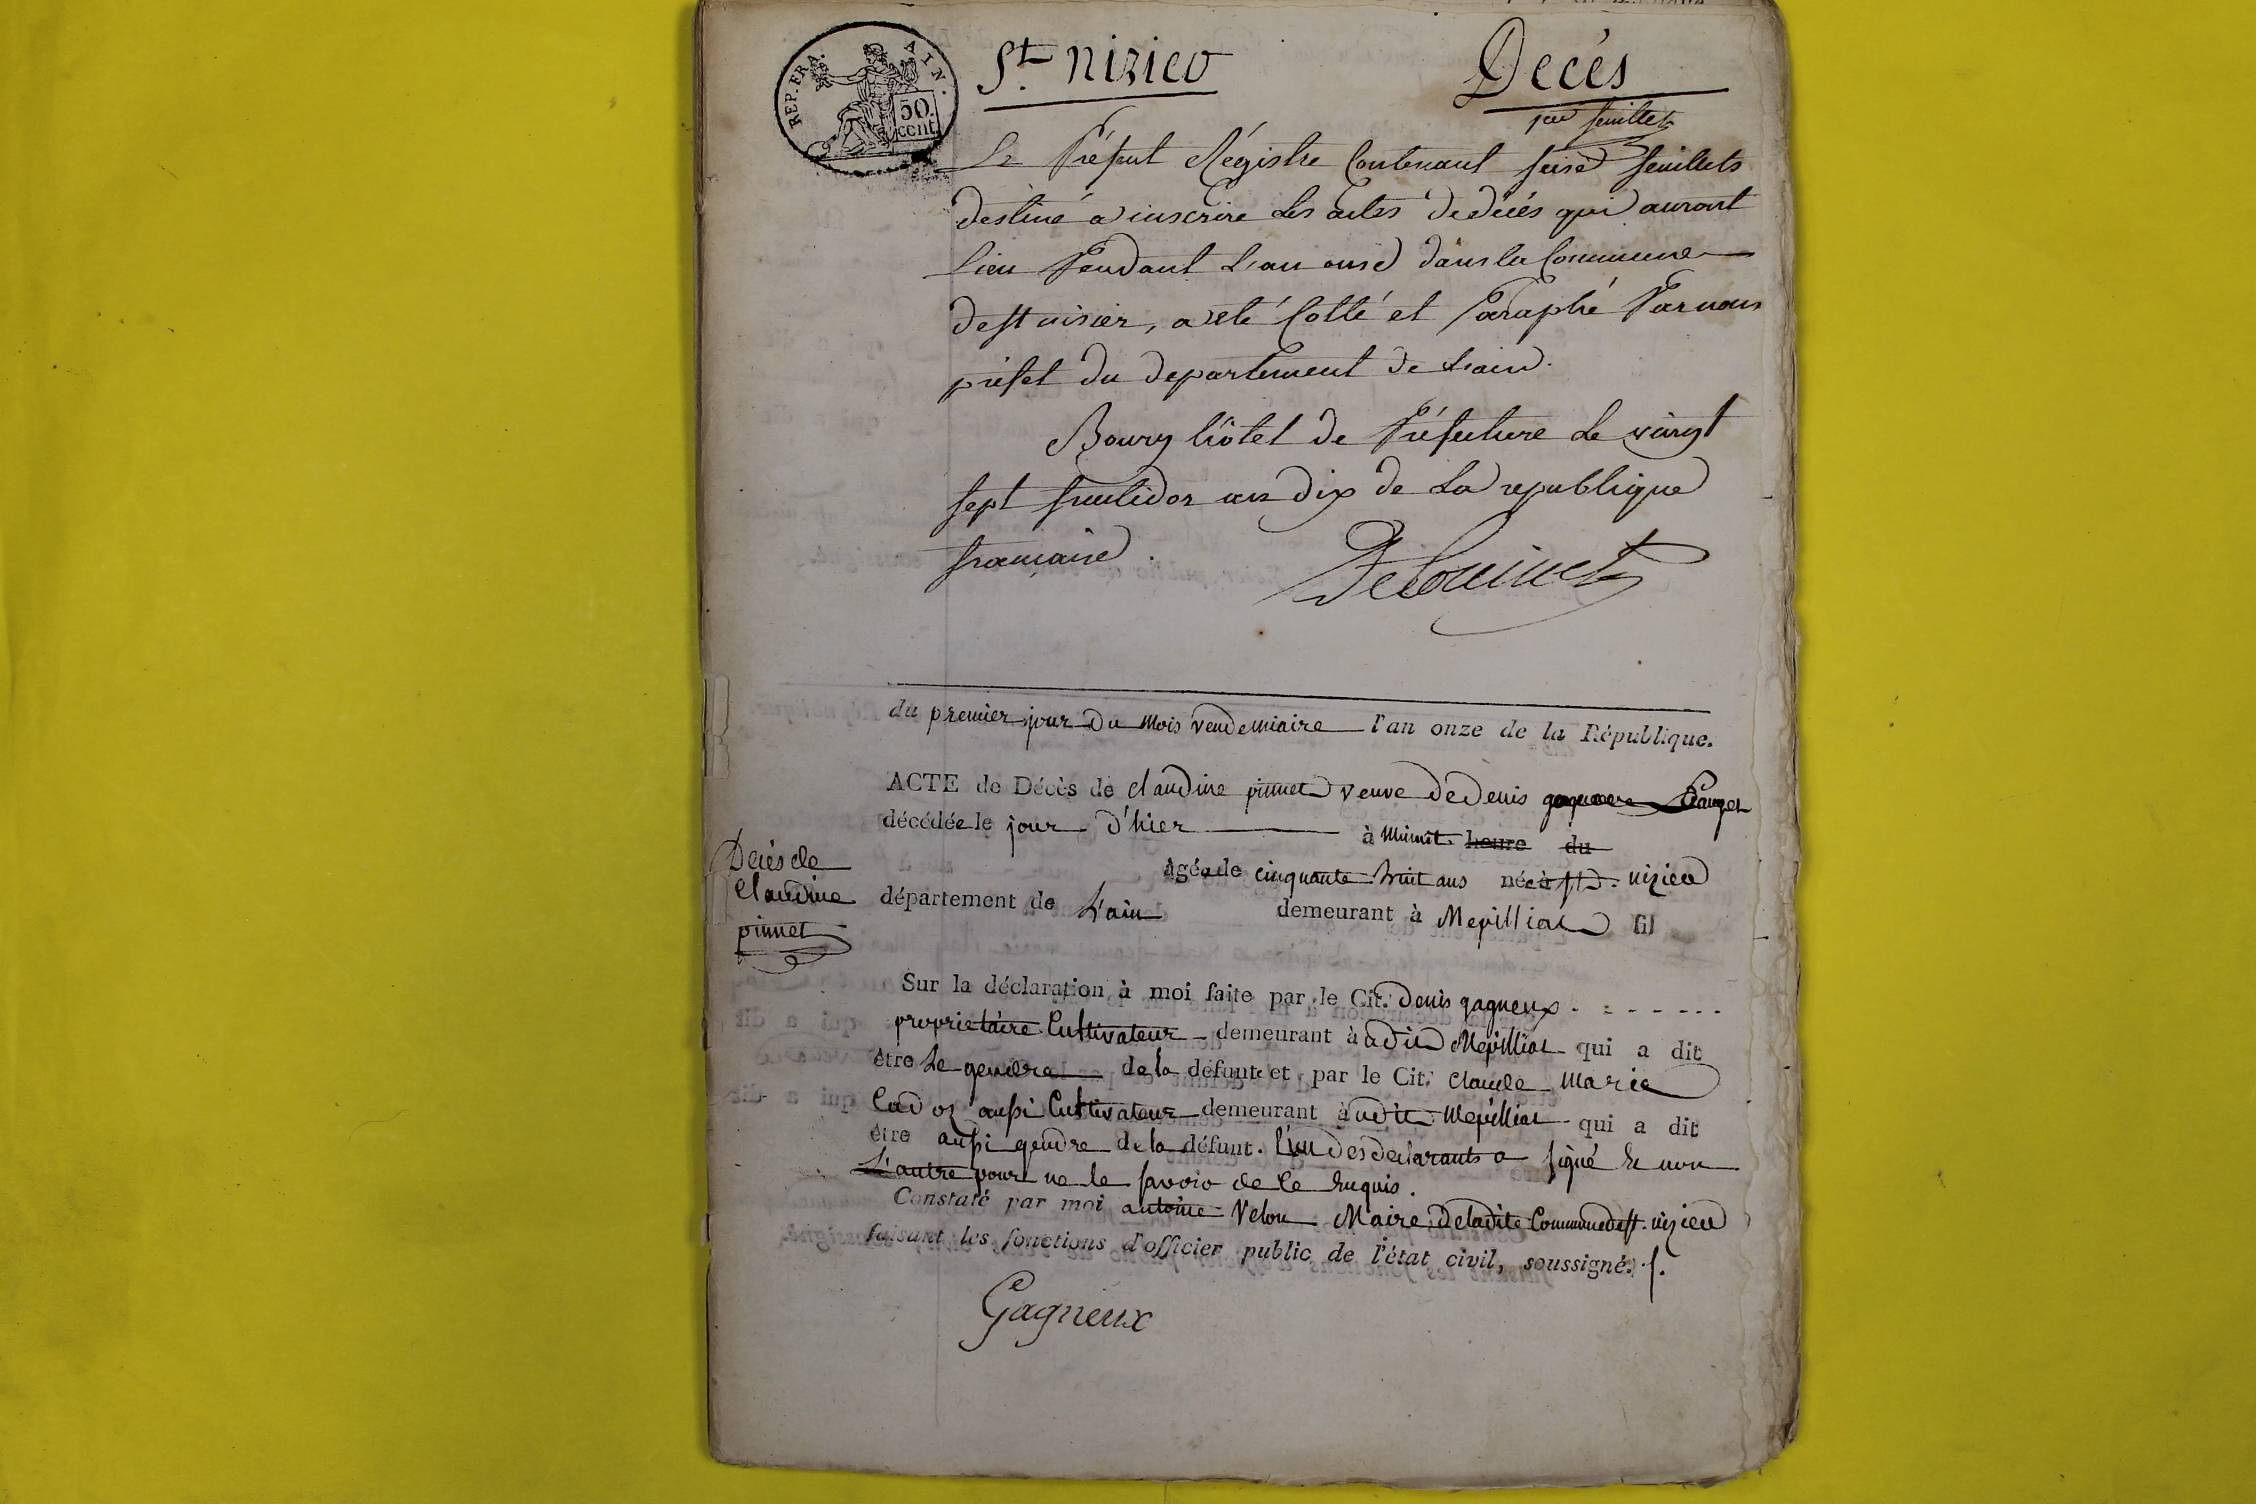 REP. FRA. AIN.
50 cent
St. nizieo
Decès
1er feuillet
Le Présent Régistre Contenant seise feuillets
destiné a inscrire les actes de décés qui auront
lieu Pendant L'an onse dans la Commune
de St nisier, a été Cotté et Paraphé Par nous
préfet du departement de L'ain.
Bourg hôtel de Préfecture Le vingt
sept fructidor an dix de La republique
française.
du premier jour Du Mois vendemiaire l'an onze de la République.
ACTE de Décès de claudine pinnet veuve de Denis
décédée le jour D'hier à Minuit heure du
âgée de cinquante huit ans née à St. nizieo
département de L'ain demeurant à Mepilliat fil
Décés de
Claudine
pinnet
Sur la déclaration à moi faite par le Cit. Denis gagneux
proprietaire Cultivateur demeurant à udit Mepilliat qui a dit
être Le gendre de la défunte et par le Cit. claude Marie
aussi Cultivateur demeurant à udit Mepilliat qui a dit
être aussi gendre de la défunt. L'un des declarants a signé & non
L'autre pour ne le savoir de Ce Enquis.
Constaté par moi antoine Velon Maire De ladite Commune de St. nizieo
faisant les fonctions d'officier public de l'état civil, soussigné.
Gagneux